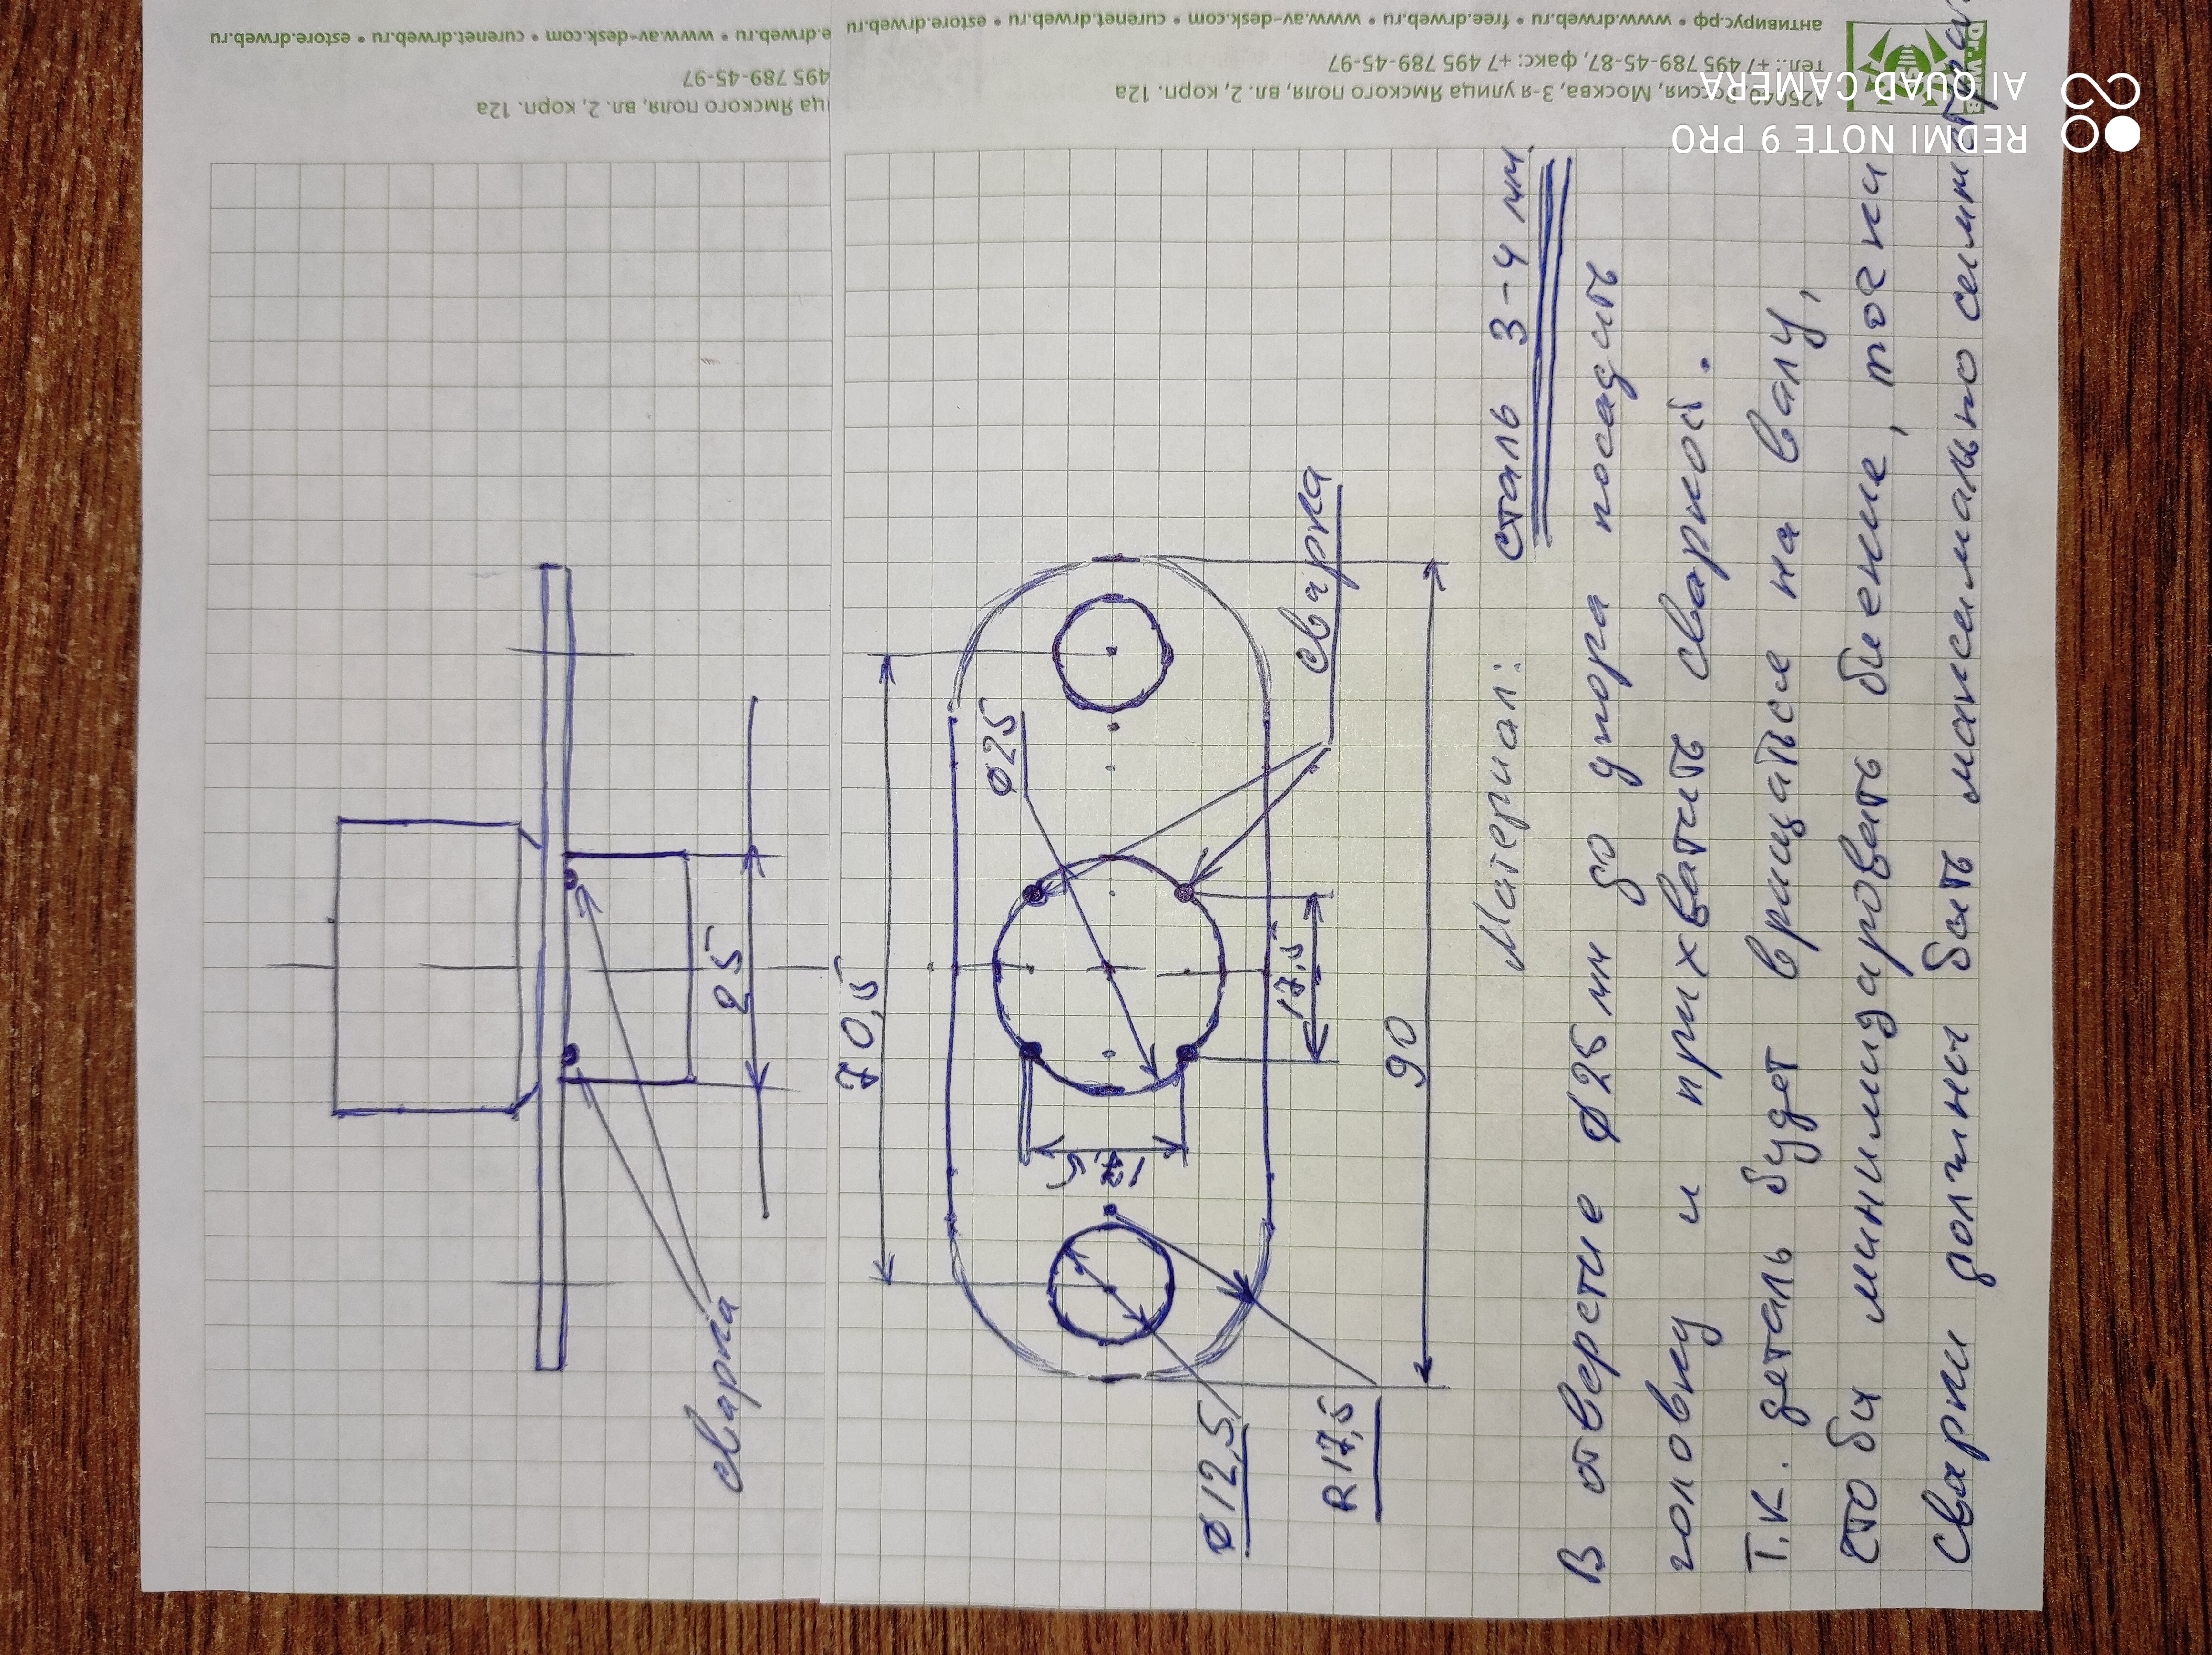 сварка
25
70,5
Ø25
сварка
17,5
17,5
90
Ø12,5
R17,5
Материал: сталь 3-4 мм.
В отверстие Ø25 мм до упора посадить
головку и прихватить сваркой.
Т.к. деталь будет вращаться на валу,
что бы минимизировать биение, точки
сварки должны быть максимально
ица Ямского поля, вл. 2, корп. 12а
495 789-45-97
e.drweb.ru • www.av-desk.com • curenet.drweb.ru • estore.drweb.ru
Россия, Москва, 3-я улица Ямского поля, вл. 2, корп. 12а
тел.: +7 495 789-45-87, факс: +7 495 789-45-97
антивирус.рф • www.drweb.ru • free.drweb.ru • www.av-desk.com • curenet.drweb.ru • estore.drweb.ru
Dr.WEB
REDMI NOTE 9 PRO
AI QUAD CAMERA